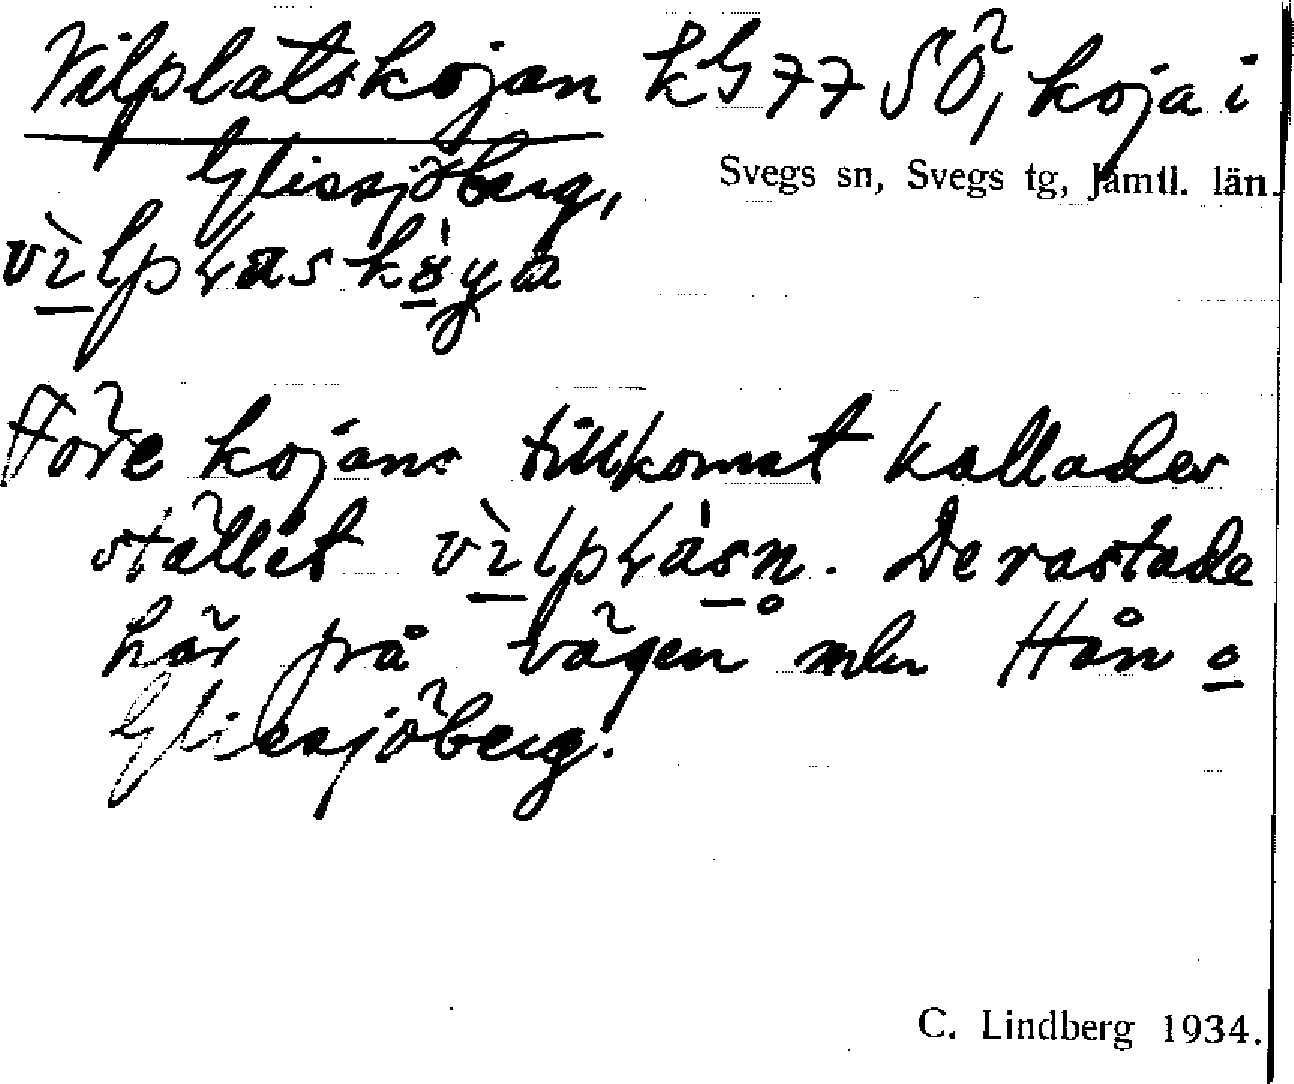 Vilplatskojan kG 77 SÖ, koja i
Glissjöberg,
Svegs sn, Svegs tg, Jämtl. län.
Före kojans tillkomst kallades
stället De rastade
här frå vägen mln Hån o
Glissjöberg.
C. Lindberg 1934.